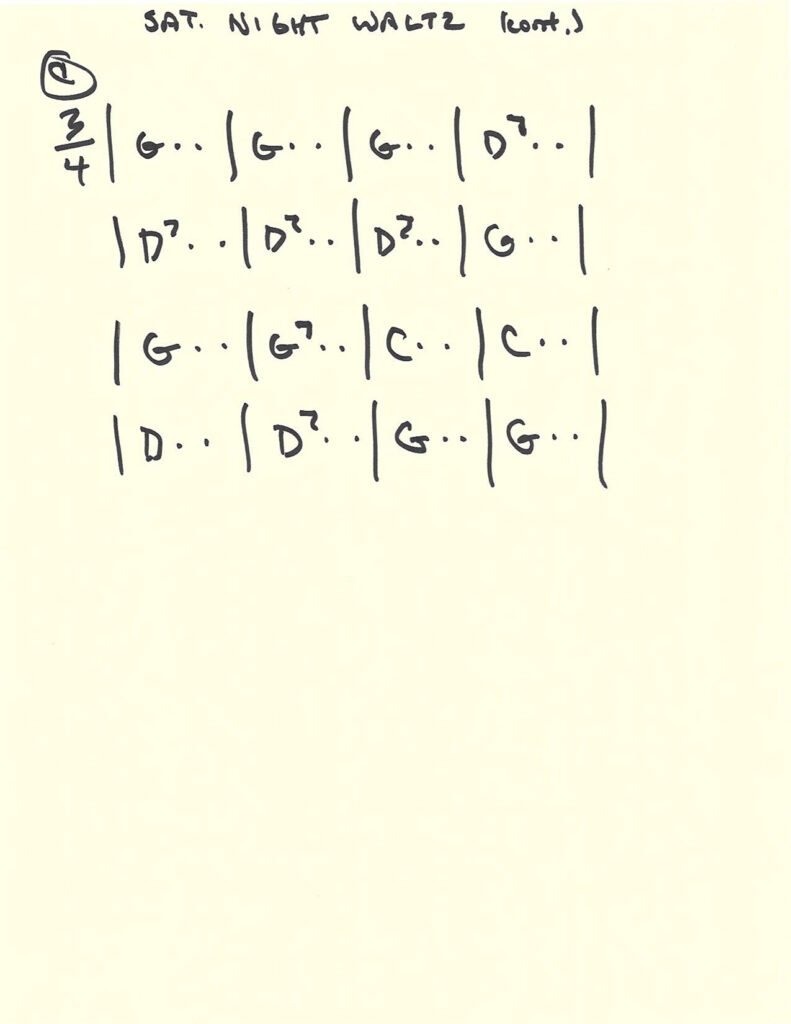 SAT. NIGHT WALTZ (cont.)
3/4 | G . . | G . . | G . . | D7 . . |
| D7 . . | D7 . . | D7 . . | G . . |
| G . . | G7 . . | C . . | C . . |
| D . . | D7 . . | G . . | G . . |